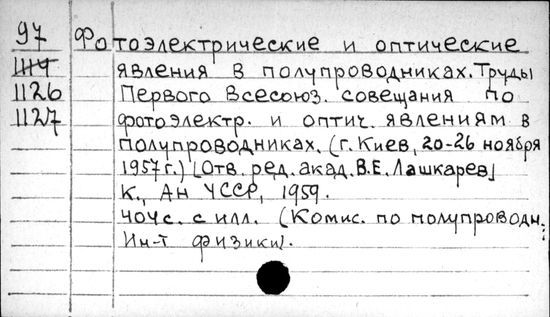 97 Фотоэлектрические и оптические
1114 явления в полупроводниках. Труды
1126 Первого Всесоюз. совещания по
1127 фотоэлектр. и оптич. явлениям в
полупроводниках. (г. Киев, 20-26 ноября
1957 г.) [Отв. ред. акад. В.Е. Лашкарев]
К., Ан УССР, 1959.
404с. с илл. (Комис. по полупроводн.;
Ин-т физики).